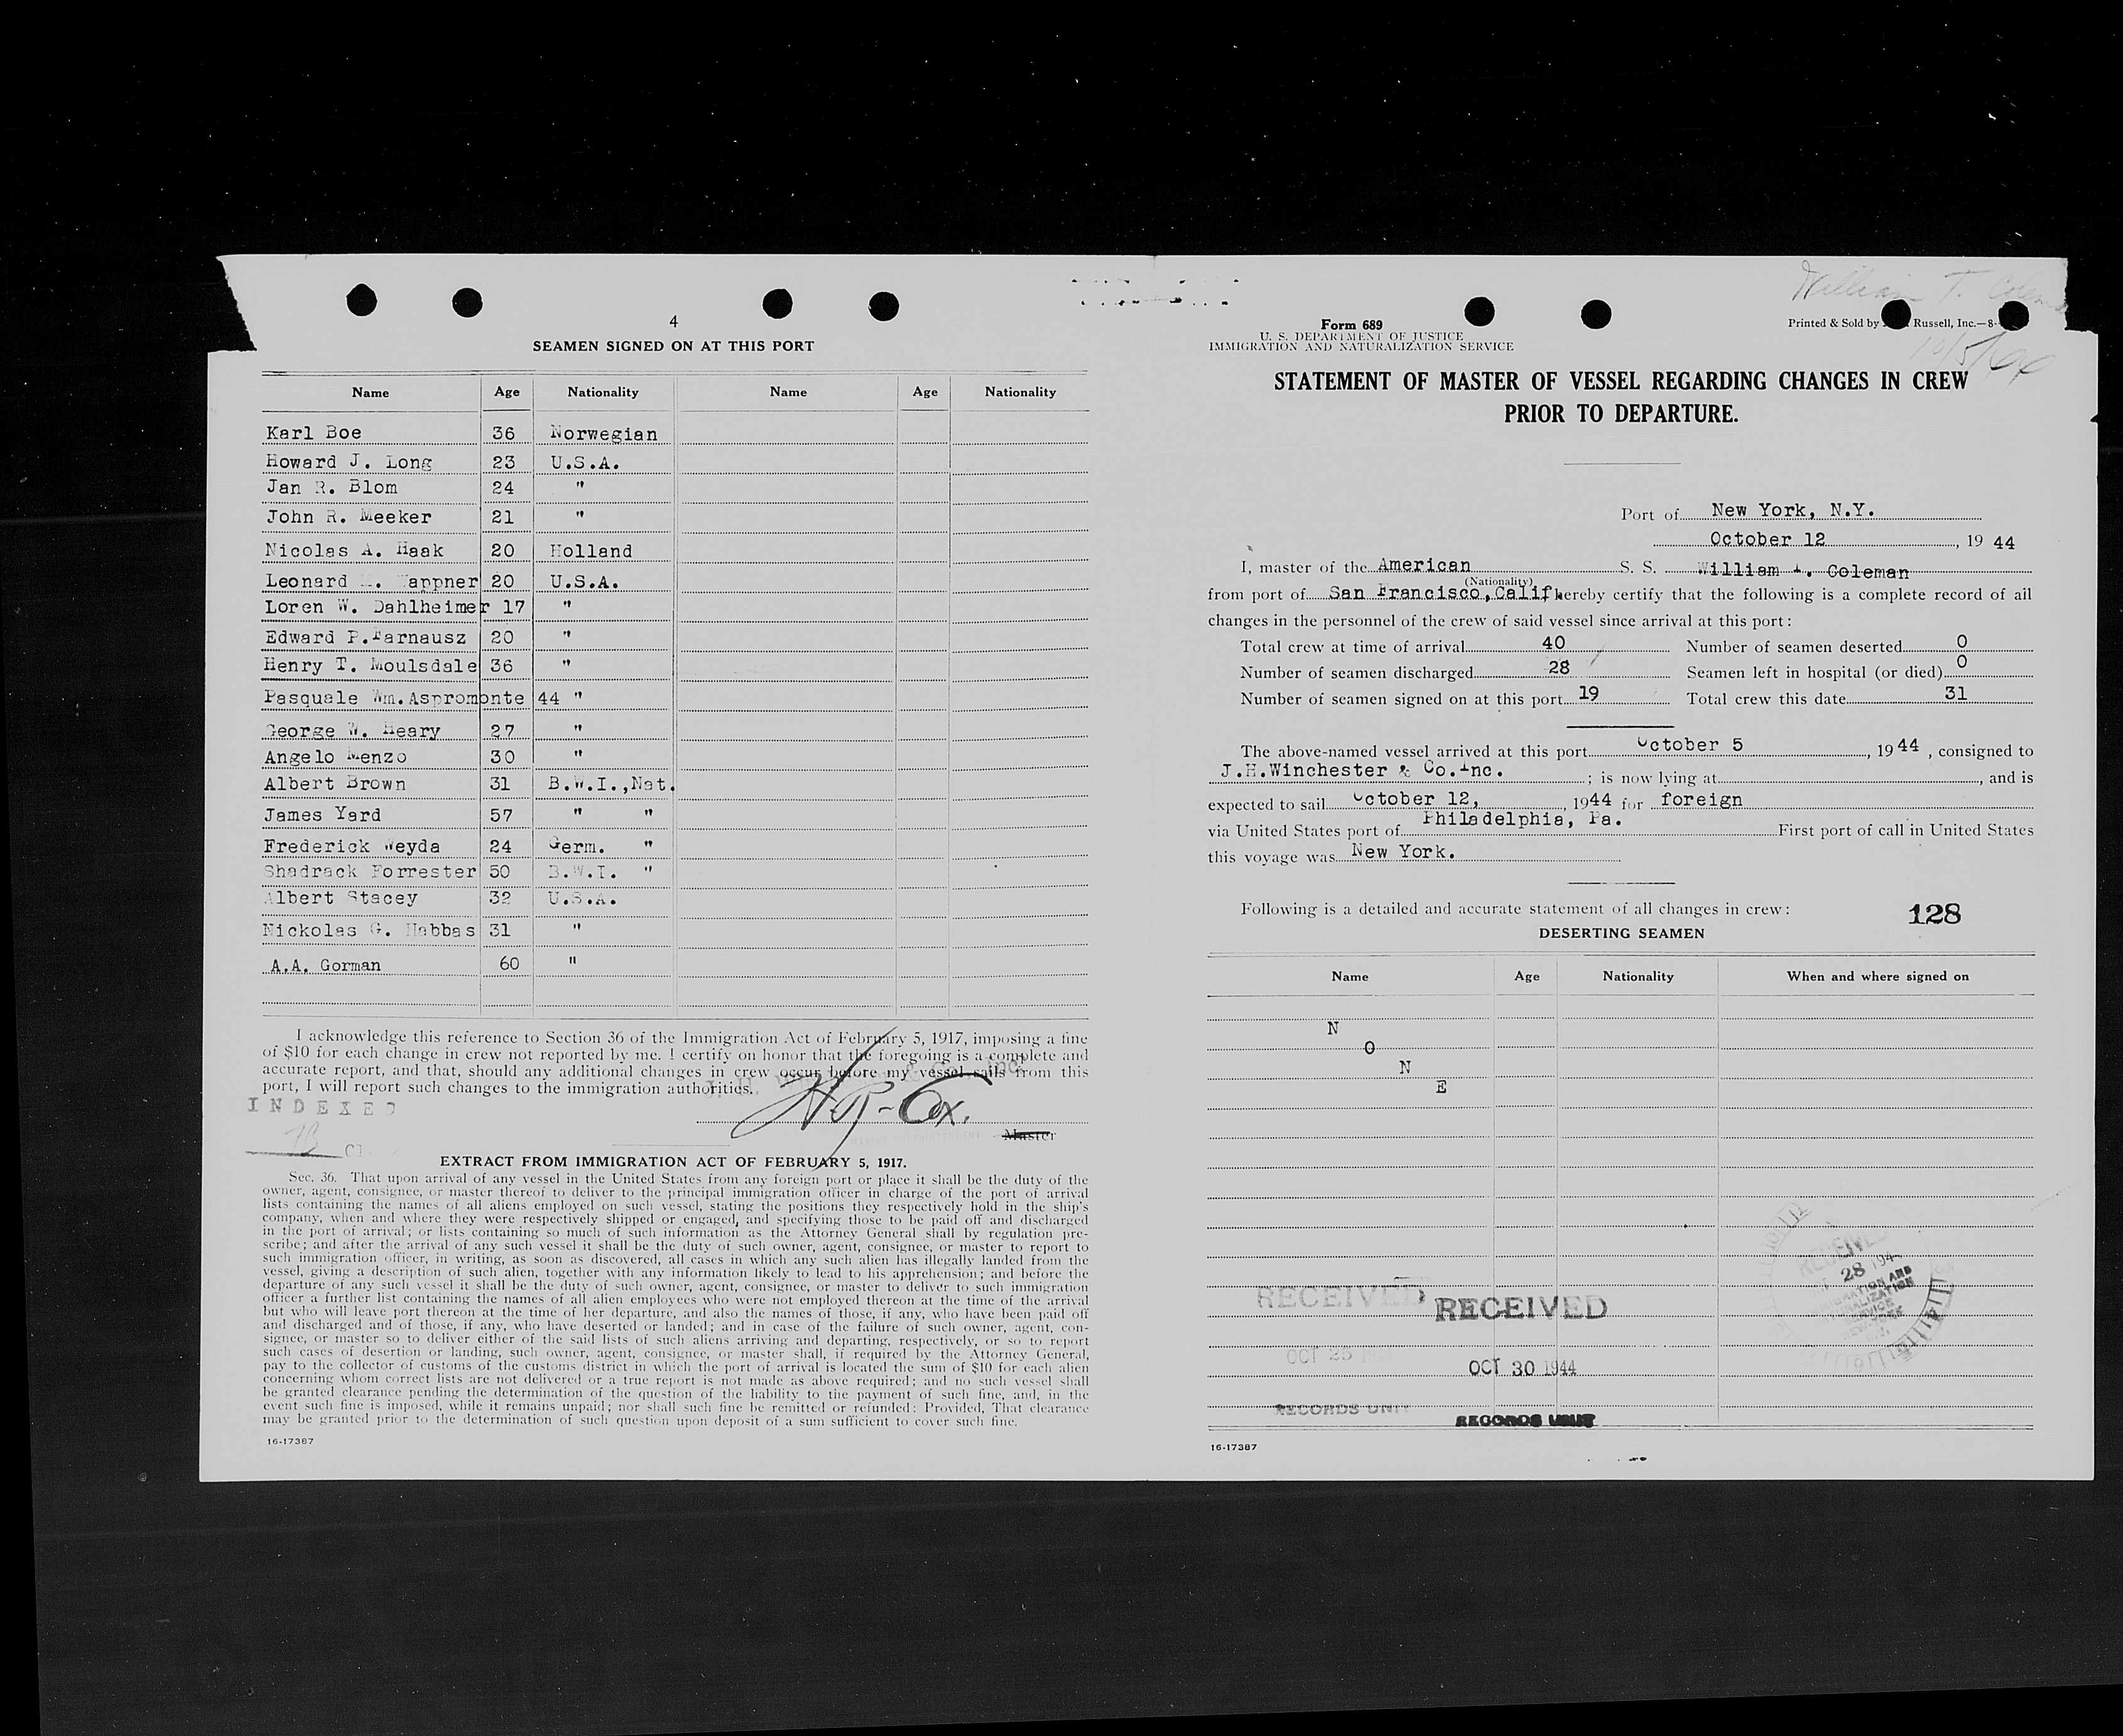 4
SEAMEN SIGNED ON AT THIS PORT
Name Age Nationality Name Age Nationality
Karl Boe 36 Norwegian
Howard J. Long 23 U.S.A.
Jan R. Blom 24 "
John R. Meeker 21 "
Nicolas A. Haak 20 Holland
Leonard 20 U.S.A.
Loren W. Dahlheimer 17 "
Edward P. 20 "
Henry T. Moulsdale 36 "
Pasquale Wm.Aspromonte 44 "
George W. Heary 27 "
Angelo Menzo 30 "
Albert Brown 31 B.W.I.,Nat.
James Yard 57 " "
Frederick Weyda 24 Germ. "
Shadrack Forrester 50 B.W.I. "
Albert Stacey 32 U.S.A.
Nickolas G. Habbas 31 "
A.A. Gorman 60 "
I acknowledge this reference to Section 36 of the Immigration Act of February 5, 1917, imposing a fine
of $10 for each change in crew not reported by me. I certify on honor that the foregoing is a complete and
accurate report, and that, should any additional changes in crew occur before my vessel sails from this
port, I will report such changes to the immigration authorities.
INDEXED
Cox.
Master
EXTRACT FROM IMMIGRATION ACT OF FEBRUARY 5, 1917.
Sec. 36. That upon arrival of any vessel in the United States from any foreign port or place it shall be the duty of the
owner, agent, consignee, or master thereof to deliver to the principal immigration officer in charge of the port of arrival
lists containing the names of all aliens employed on such vessel, stating the positions they respectively hold in the ship's
company, when and where they were respectively shipped or engaged, and specifying those to be paid off and discharged
in the port of arrival; or lists containing so much of such information as the Attorney General shall by regulation pre-
scribe; and after the arrival of any such vessel it shall be the duty of such owner, agent, consignee, or master to report to
such immigration officer, in writing, as soon as discovered, all cases in which any such alien has illegally landed from the
vessel, giving a description of such alien, together with any information likely to lead to his apprehension; and before the
departure of any such vessel it shall be the duty of such owner, agent, consignee, or master to deliver to such immigration
officer a further list containing the names of all alien employees who were not employed thereon at the time of the arrival
but who will leave port thereon at the time of her departure, and also the names of those, if any, who have been paid off
and discharged and of those, if any, who have deserted or landed; and in case of the failure of such owner, agent, con-
signee, or master so to deliver either of the said lists of such aliens arriving and departing, respectively, or so to report
such cases of desertion or landing, such owner, agent, consignee, or master shall, if required by the Attorney General,
pay to the collector of customs of the customs district in which the port of arrival is located the sum of $10 for each alien
concerning whom correct lists are not delivered or a true report is not made as above required; and no such vessel shall
be granted clearance pending the determination of the question of the liability to the payment of such fine, and, in the
event such fine is imposed, while it remains unpaid; nor shall such fine be remitted or refunded: Provided, That clearance
may be granted prior to the determination of such question upon deposit of a sum sufficient to cover such fine.
16-17387
William T.
Form 689
U. S. DEPARTMENT OF JUSTICE
IMMIGRATION AND NATURALIZATION SERVICE
Printed & Sold by Russell, Inc.—8-
STATEMENT OF MASTER OF VESSEL REGARDING CHANGES IN CREW
PRIOR TO DEPARTURE.
Port of New York, N.Y.
October 12, 1944
I, master of the American S. S. William T. Coleman
(Nationality)
from port of San Francisco,Calif hereby certify that the following is a complete record of all
changes in the personnel of the crew of said vessel since arrival at this port:
Total crew at time of arrival 40 Number of seamen deserted 0
Number of seamen discharged 28 Seamen left in hospital (or died) 0
Number of seamen signed on at this port 19 Total crew this date 31
The above-named vessel arrived at this port October 5, 1944, consigned to
J.H.Winchester & Co.Inc.; is now lying at, and is
expected to sail October 12, 1944 for foreign
via United States port of Philadelphia, Pa. First port of call in United States
this voyage was New York.
Following is a detailed and accurate statement of all changes in crew: 128
DESERTING SEAMEN
Name Age Nationality When and where signed on
N
O
N
E
RECEIVED
28 194
RECEIVED RECEIVED
OCT 25
OCT 30 1944
RECORDS UNIT RECORDS UNIT
16-17387